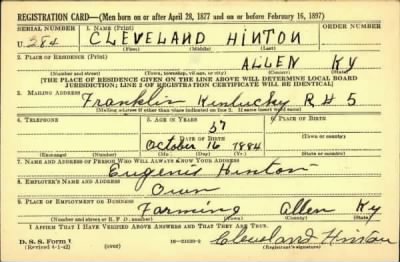 REGISTRATION CARD—(Men born on or after April 28, 1877 and on or before February 16, 1897)
SERIAL NUMBER 1. NAME (Print)
U 284 CLEVELAND HINTON
(First) (Middle) (Last)
2. PLACE OF RESIDENCE (Print)
ALLEN KY
(Number and street) (Town, township, village, or city) (County) (State)
[THE PLACE OF RESIDENCE GIVEN ON THE LINE ABOVE WILL DETERMINE LOCAL BOARD
JURISDICTION; LINE 2 OF REGISTRATION CERTIFICATE WILL BE IDENTICAL]
3. MAILING ADDRESS
Franklin Kentucky R # 5
[Mailing address if other than place indicated on line 2. If same insert word same]
4. TELEPHONE 5. AGE IN YEARS 6. PLACE OF BIRTH
57
DATE OF BIRTH (Town or county)
October 16 1884
(Exchange) (Number) (Mo.) (Day) (Yr.) (State or country)
7. NAME AND ADDRESS OF PERSON WHO WILL ALWAYS KNOW YOUR ADDRESS
Eugenis Hinton
8. EMPLOYER'S NAME AND ADDRESS
Own
9. PLACE OF EMPLOYMENT OR BUSINESS
Farming Allen Ky
(Number and street or R. F. D. number) (Town) (County) (State)
I AFFIRM THAT I HAVE VERIFIED ABOVE ANSWERS AND THAT THEY ARE TRUE.
D. S. S. Form 1
(Revised 4-1-42) (over) Cleveland Hinton
(Registrant's signature)